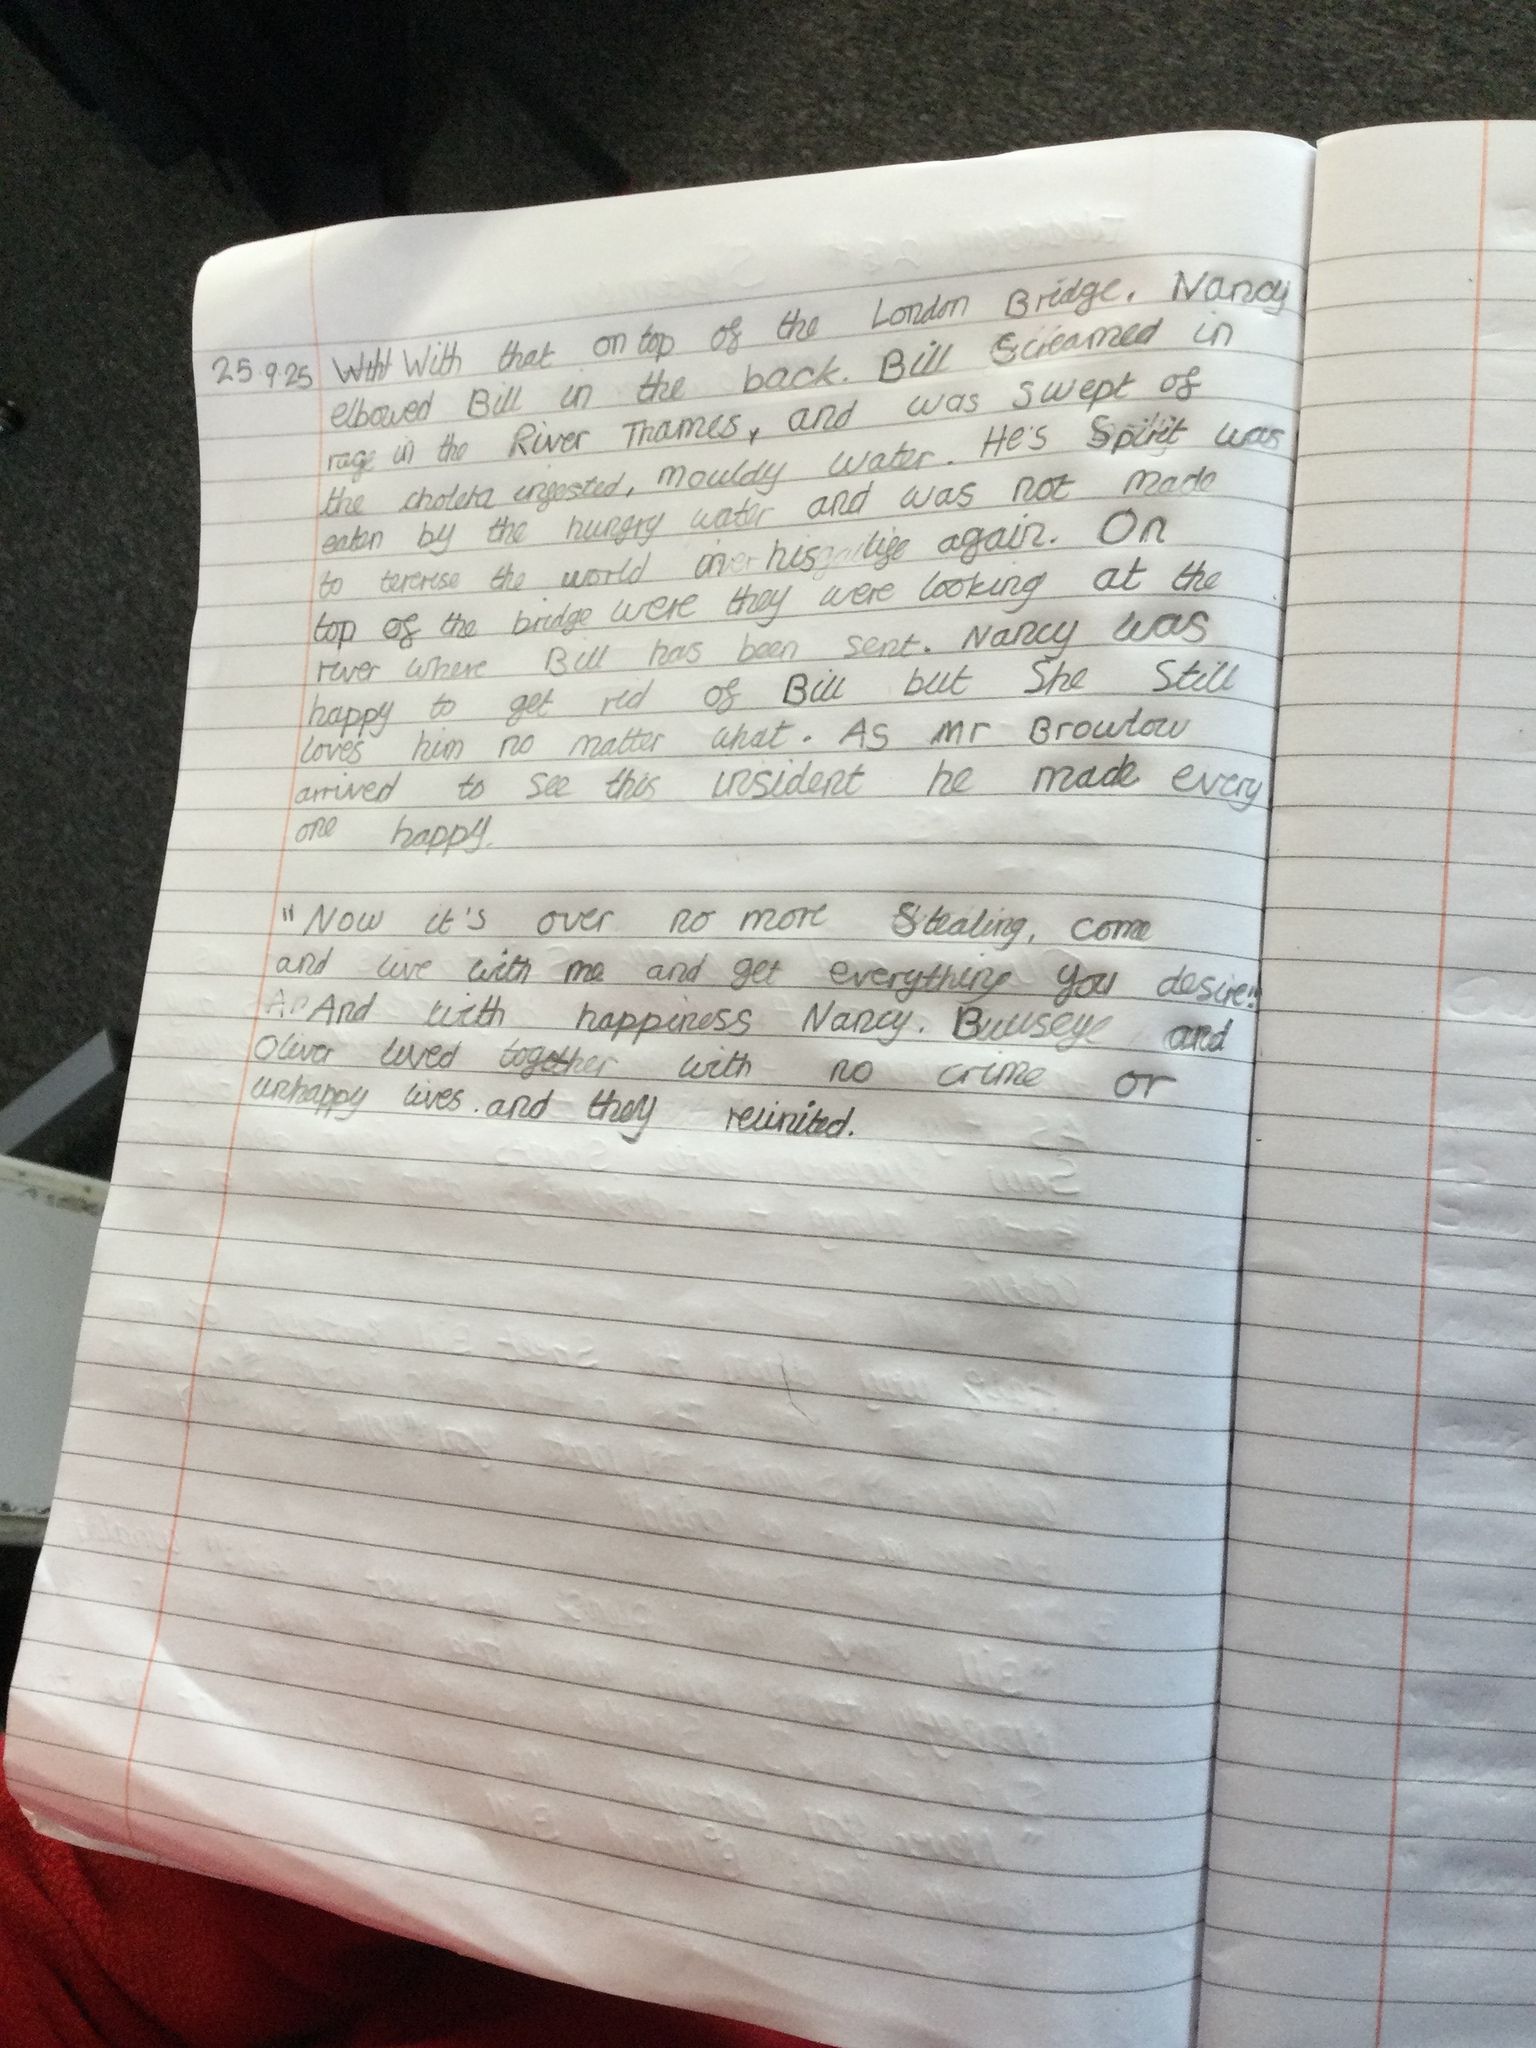 25.9.25 With that on top of the London Bridge. Nancy
elbowed Bill in the back. Bill Screamed in
rage in the River Thames, and was swept of
the cholera ingested, mouldy water. He's Spirit was
eaten by the hungry water and was not made
to tererise the world over his again. On
top of the bridge were they were looking at the
river where Bill has been sent. Nancy was
happy to get rid of Bill but She Still
loves him no matter what. As Mr Browlow
arrived to see this insident he made every
one happy.
"Now it's over no more Stealing, come
and live with me and get everything you desire!"
And with happiness Nancy. Bullseye and
Oliver lived together with no crime or
unhappy lives. and they reunited.